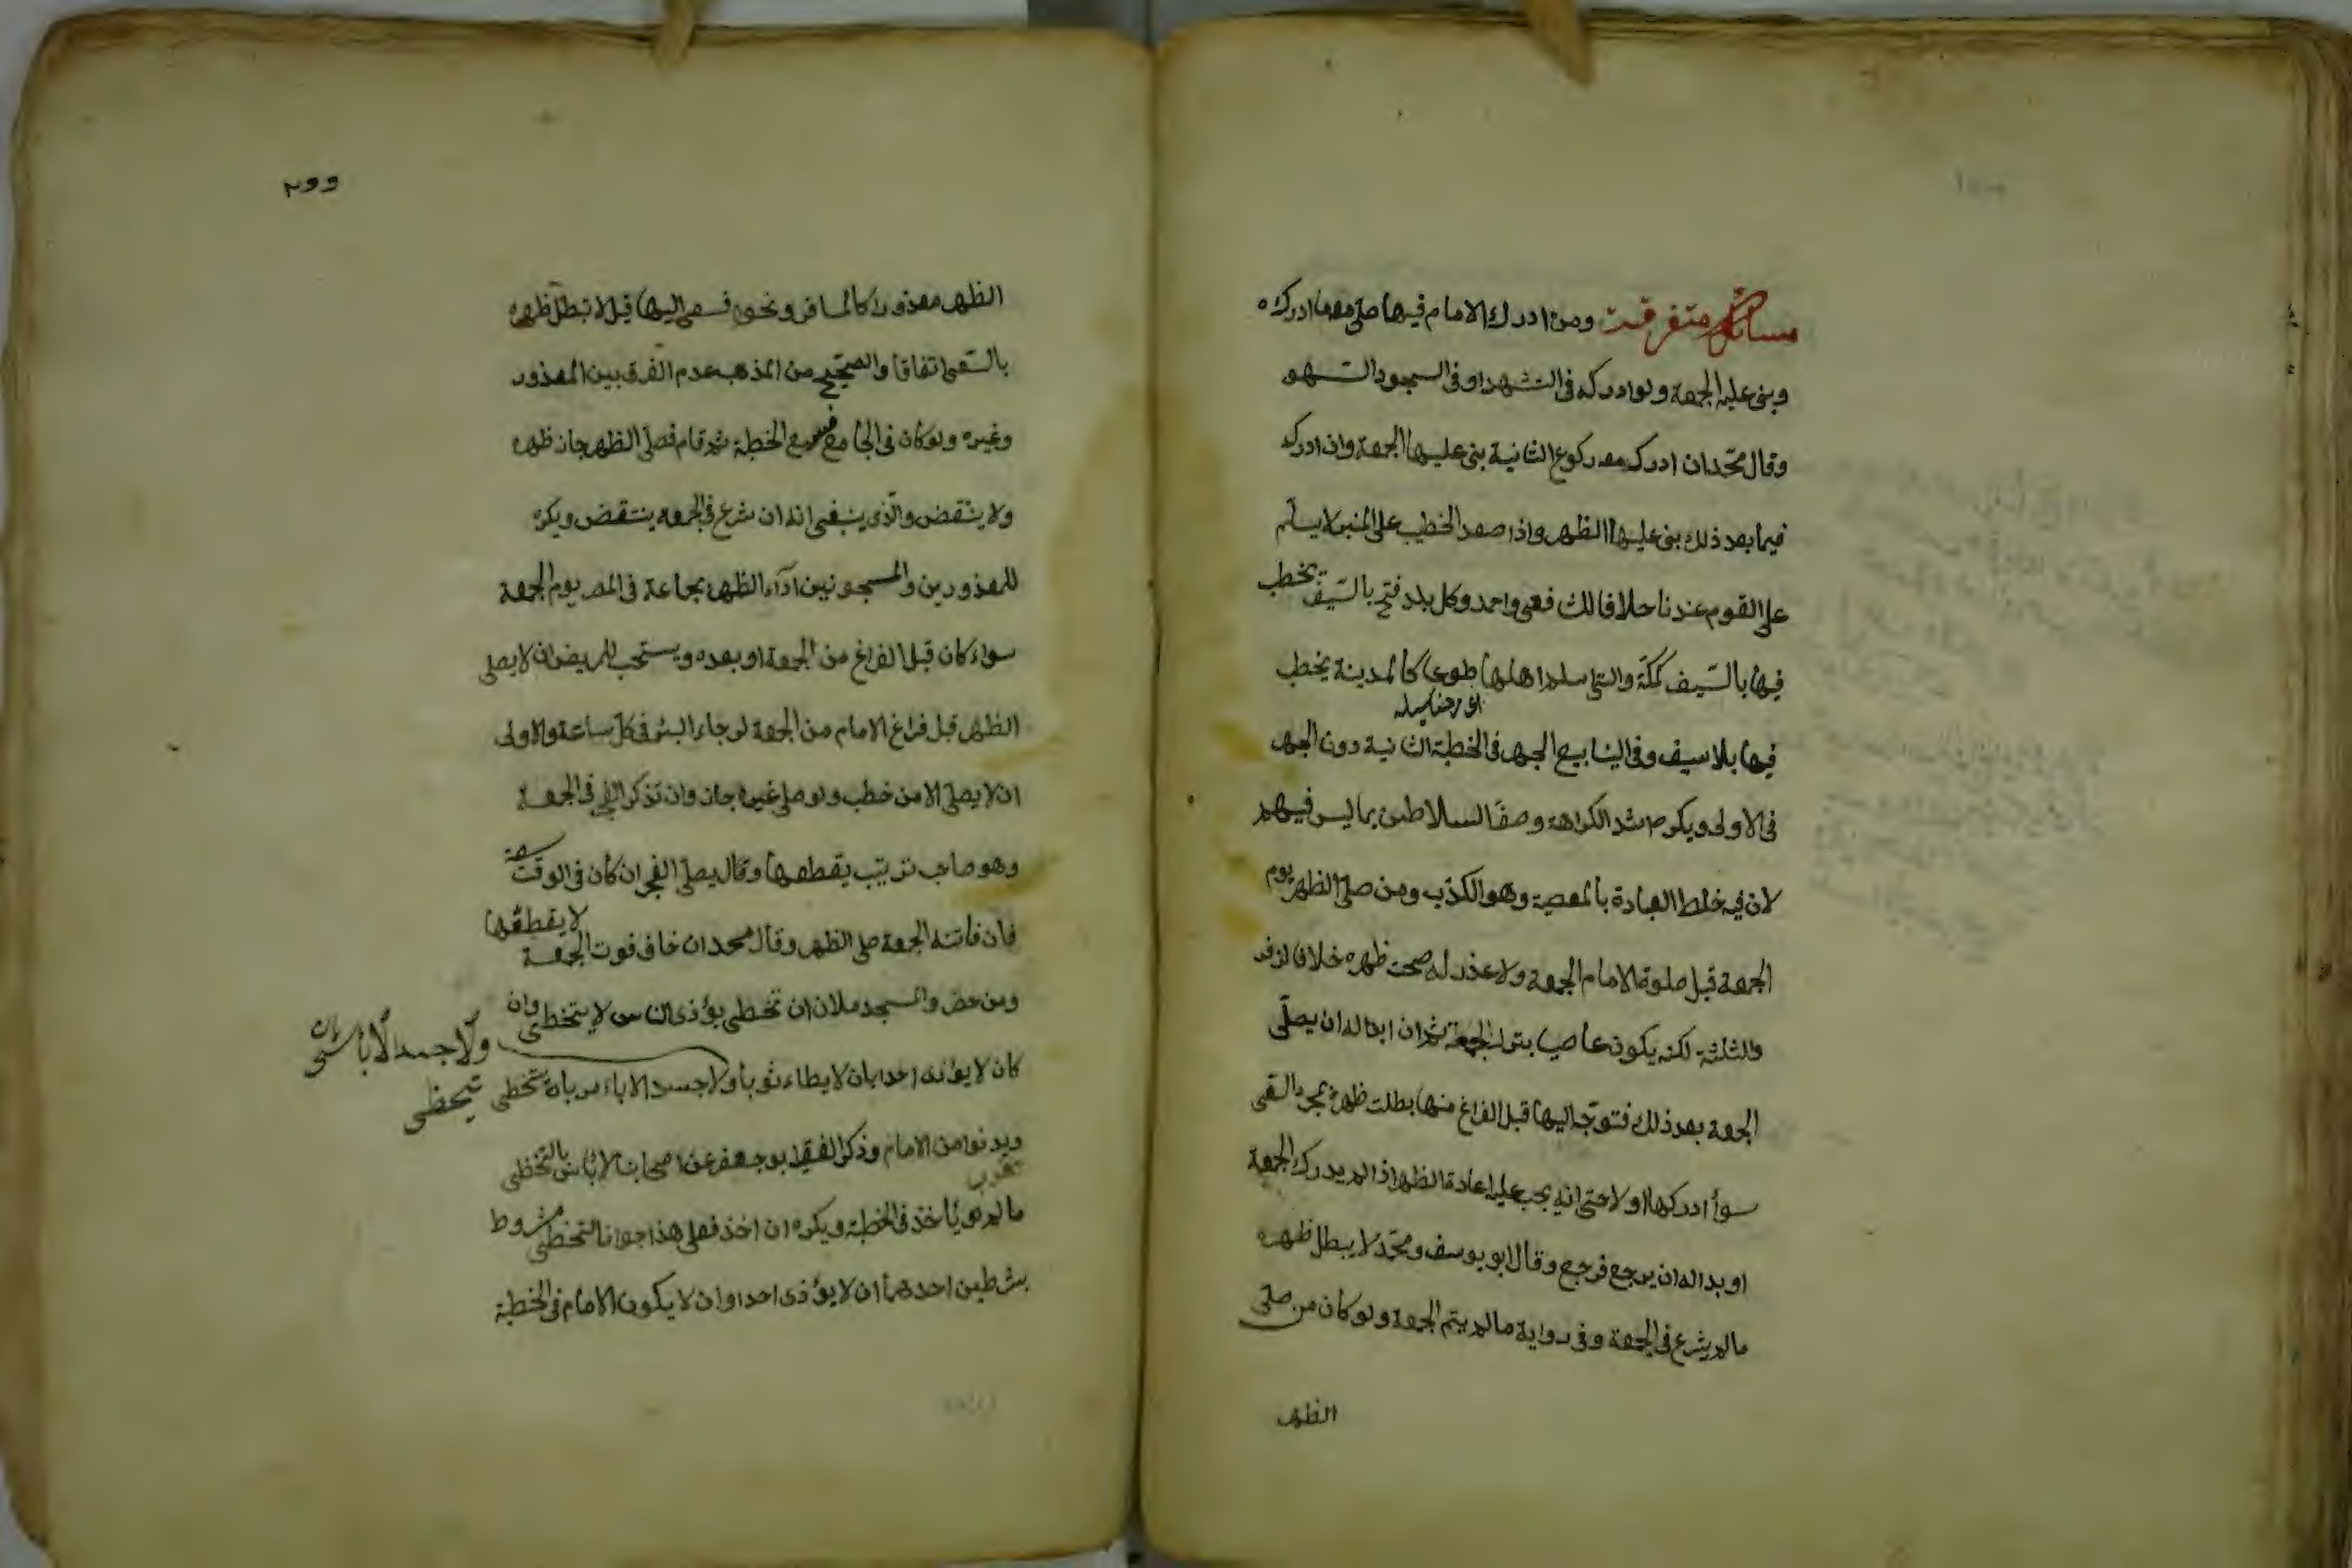 مسائل متفرقة ومن ادرك الامام فيها صلى معه ما ادركه
وبنى عليه الجمعة ولو ادركه فى التشهد او فى السجود السهو
وقال محمد ان ادرك معه ركوع الثانية بنى عليها الجمعة وان ادركه
فيما بعد ذلك بنى عليها الظهر واذا صعد الخطيب على المنبر لا يسلم
على القوم عندنا خلافا للشافعى واحمد وكل بلد فتح بالسيف يخطب
فيها بالسيف كمكة والتى اسلم اهلها طوعا كالمدينة يخطب
فيها بلا سيف وفى الينابيع الجهر فى الخطبة الثانية دون الجهر
فى الاولى ويكره اشد الكراهة وصف السلاطين بما ليس فيهم
لان فيه خلط العبادة بالمعصية وهو الكذب ومن صلى الظهر يوم
الجمعة قبل صلوة الامام الجمعة ولا عذر له صحت ظهره خلافا لزفر
والثلثة لكنه يكون عاصيا بترك الجمعة ثم ان بدا له ان يصلى
الجمعة بعد ذلك فتوجه اليها قبل الفراغ منها بطلت ظهره بمجرد السعى
سواء ادركها او لا حتى انه يجب عليه اعادة الظهر اذا لم يدرك الجمعة
او بدا له ان يرجع فرجع وقال ابو يوسف ومحمد لا يبطل ظهره
ما لم يشرع فى الجمعة وفى رواية ما لم يتم الجمعة ولو كان من صلى
الظهر
٢٩٩
الظهر معذورا كالمسافر ونحوه فسعى اليها قيل لا تبطل ظهره
بالسعى اتفاقا والصحيح من المذهب عدم الفرق بين المعذور
وغيره ولو كان فى الجامع فسمع الخطبة ثم قام فصلى الظهر جاز ظهره
ولا ينتقض والذى ينبغى انه ان شرع فى الجمعة ينتقض ويكره
للمعذورين والمسجونين اداء الظهر بجماعة فى المصر يوم الجمعة
سواء كان قبل الفراغ من الجمعة او بعده ويستحب للمريض ان لا يصلى
الظهر قبل فراغ الامام من الجمعة لرجاء البرء فى كل ساعة والاولى
ان لا يصلى الا من خطب ولو صلى غيره جاز وان تذكر الفجر فى الجمعة
وهو صاحب ترتيب يقطعها وقال يصلى الفجر ان كان فى الوقت سعة
فان فاتته الجمعة صلى الظهر وقال محمد ان خاف فوت الجمعة لا يقطعها
ومن حضر والمسجد ملان ان تخطى يؤذى الناس لا يتخطى وان
كان لا يؤذى احدا بان لا يطاء ثوبا ولا جسدا لا باس بان يتخطى
ولا جسدا لا باس بان
يتخطى
ويدنوا من الامام وذكر الفقيه ابو جعفر عن اصحابنا لا باس بالتخطى
ما لم ياخذ فى الخطبة ويكره ان اخذ فعلى هذا جواز التخطى مشروط
بشرطين احدهما ان لا يؤذى احدا وان لا يكون الامام فى الخطبة